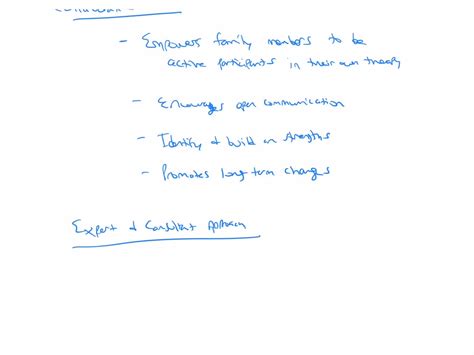 - Empowers family members to be
active participants in their own therapy
- Encourages open communication
- Identify & build on strengths
- Promotes long term changes
Expert & Consultant Approach